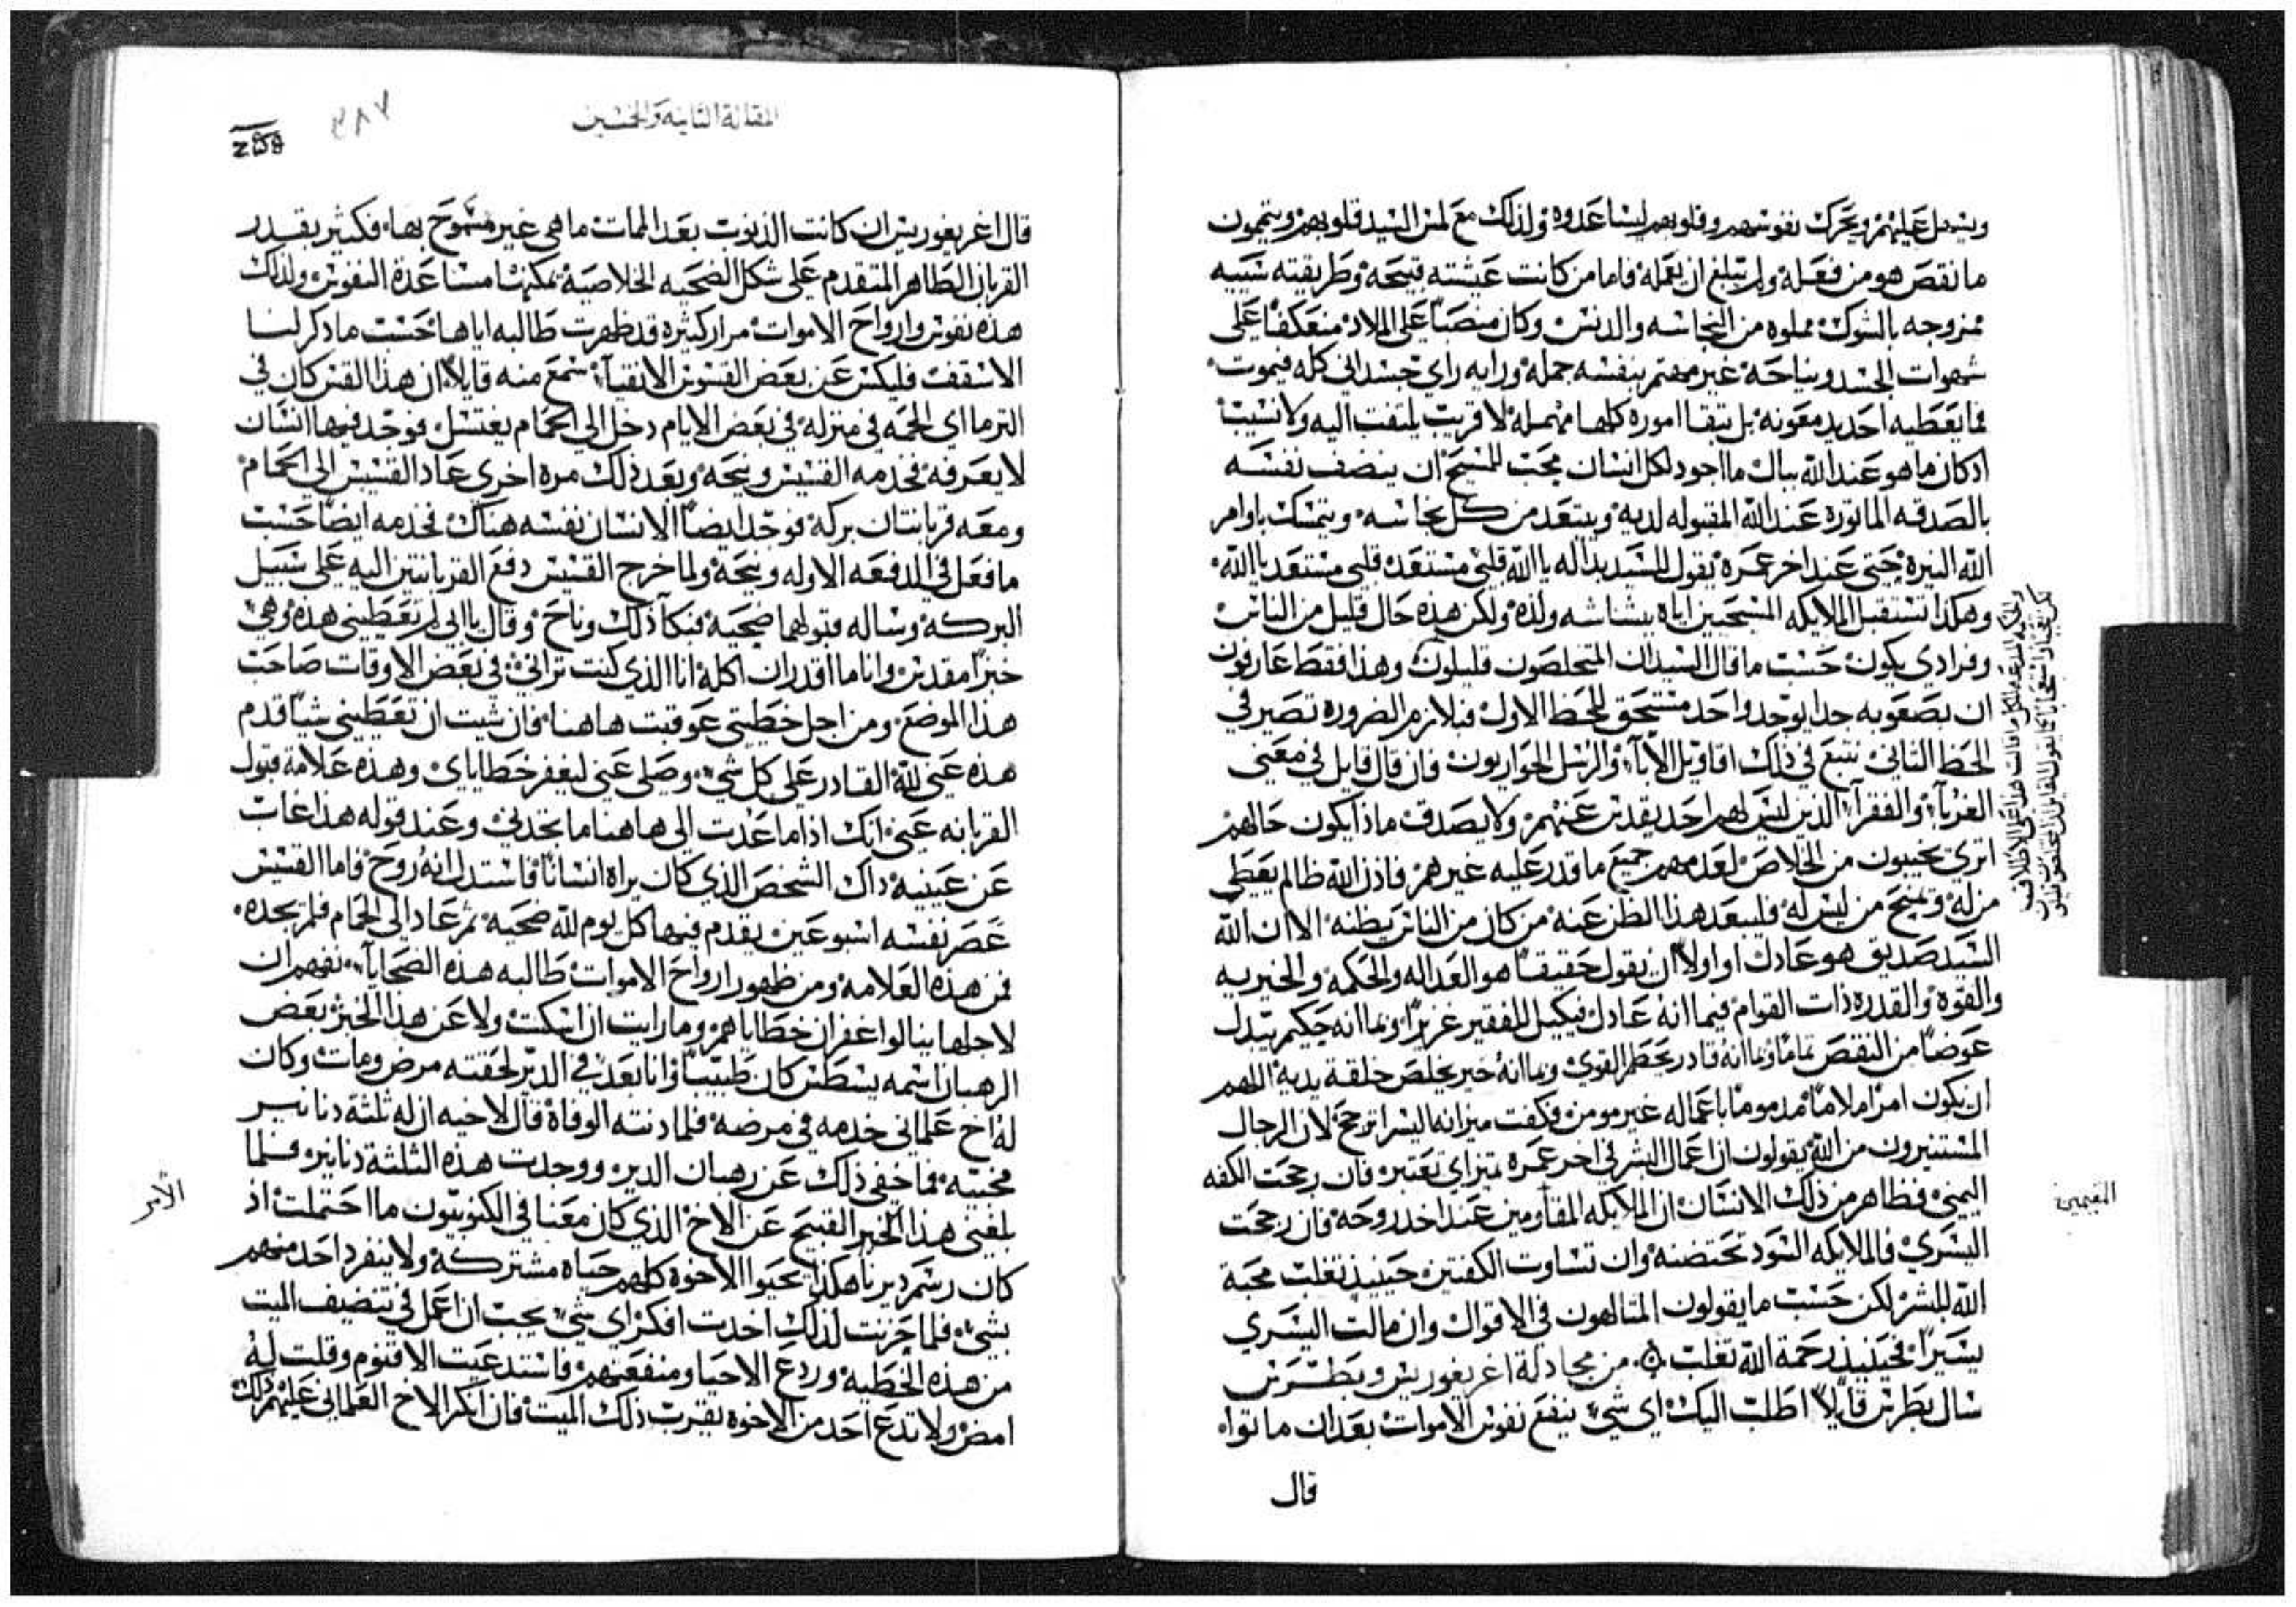 ويسهل عليهم ويحرك نفوسهم وقلوبهم ليساعدوه ولذلك مع لمس السيد قلوبهم ويتمون
ما نقص هو من فعله ولم يبلغ ان يعمله فاما من كانت عيشته قبيحه وطريقته شبيه
ممزوجه بالشوك مملوه من النجاسه والدنس وكان منصبا على الملاذ منعكفا على
شهوات الجسد ونياحه غير مهتم بنفسه جمله ورايه راي جسداني كله فيموت
فما يعطيه احد يد معونه بل تبقا اموره كلها مهمله لا قريب يلتفت اليه ولا نسيب
اذ كان ما هو عند الله ببال ما اجود لكل انسان محب للمسيح ان ينضف نفسه
بالصدقه الماثوره عند الله المقبوله لديه ويبتعد من كل نجاسه ويتمسك باوامر
الله النيره حتى عند اخر عمره يقول للسيد بداله يا الله قلبي مستعد قلبي مستعد يا الله
وهكذا تستقبل الملايكه المسبحين اياه ببشاشه ولذه ولكن هذه حال قليل من الناس
وفرادي يكون حسب ما قال السيد ان المتخلصون قليلون وهذا فقط عارفون
ان بصعوبه جدا يوجد واحد مستحق للحظ الاول فبلازم الضروره تصير في
الحظ الثاني نتبع في ذلك اقاويل الاباء والرسل الحواريون فان قال قايل في معنى
الغرباء والفقرا الذين ليس لهم احد يقدس عنهم ولا يصدق ماذا يكون حالهم
اترى يخيبون من الخلاص لعدمهم جميع ما قدر عليه غيرهم فاذن الله ظالم يعطي
من له ويمنع من ليس له فليبعد هذا الظن عنه من كان من الناس يظنه الا ان الله
السيد صديق هو عادل او اولا ان يقول حقيقا هو العداله والحكمه والخيريه
والقوه والقدره ذات القوام فبما انه عادل فيكيل للفقير غزيرا وبما انه حكيم يبدل
عوضا من النقص تماما وبما انه قادر يحطم القوي وبما انه خير يخلص خلقة يديه اللهم
ان يكون امرا ملاما مذموما باعماله غير مومن فكفت ميزانه اليسرا ترجح لان الرجال
المستنيرون من الله يقولون ان اعمال البشر في اخر عمره تمتز اي تعتبر فان رجحت الكفه
اليمنى فظاهر من ذلك الانسان ان الملايكه المقاومين عند اخد روحه فان رجحت
اليسري فالملايكه السود تحتضنه وان تساوت الكفتين حينيذ تغلب محبة
الله للبشر لكن حسب ما يقولون المتالهون في الاقوال وان مالت اليسري
يسيرا فحينيذ رحمة الله تغلب من مجادلة اغريغوريس وبطرس
سال بطرس قايلا اطلب اليك اي شي ينفع نفوس الاموات بعد ان ماتوا
قال
المقيمين
المقالة الثانيه والخمسين
قال اغريغوريس ان كانت الذنوب بعد الممات ما هي غير مسموح بها فكثير يقدر
القربان الطاهر المتقدم على شكل الضحيه الخلاصيه تمكنها مساعدة النفوس ولذلك
هذه نفوس وارواح الاموات مرار كثيره قد ظهرت طالبه اياها حسب ما ذكر لنا
الاسقف فليكس عن بعض القسوس الاتقياء سمع منه قايلا ان هذا القس كان في
الترما اي الحمه في منزله في بعض الايام دخل الى الحمام يغتسل فوجد فيها انسان
لا يعرفه فخدمه القسيس ونيحه وبعد ذلك مره اخري عاد القسيس الى الحمام
ومعه قربانتان بركه فوجد ايضا الانسان نفسه هناك فخدمه ايضا حسب
ما فعل في الدفعه الاوله ونيحه ولما خرج القسيس دفع القربانتين اليه على سبيل
البركه وساله قبولهما ضحيه فبكا ذلك وناح وقال يا ابي لم تعطيني هذه وهي
خبزا مقدس وانا ما اقدر ان اكله انا الذي كنت تراني في بعض الاوقات صاحب
هذا الموضع ومن اجل خطيتي عوقبت هاهنا فان شيت ان تعطيني شيا قدم
هذه عني لله القادر على كل شي وصلي عني ليغفر خطاياي وهذه علامة قبول
القربانه عني انك اذا ما عدت الى هاهنا ما تجدني وعند قوله هذا غاب
عن عينيه ذاك الشخص الذي كان يراه انسانا فاستدل انه روح فاما القسيس
عصر نفسه اسبوعين يقدم فيها كل يوم لله ضحيه ثم عاد الى الحمام فلم يجده
فمن هذه العلامه ومن ظهور ارواح الاموات طالبه هذه الضحايا نفهم ان
لاجلها ينالوا غفران خطاياهم وما رايت ان اسكت ولا عن هذا الخبر بعض
الرهبان اسمه يسطس كان طبيبا وانا بعد في الدير لحقته مرض ومات وكان
له اخ علماني خدمه في مرضه فلما دنته الوفاة قال لاخيه ان له ثلثة دنانير
مخبيه فما خفي ذلك عن رهبان الدير ووجدت هذه الثلثة دنانير فلما
بلغني هذا الخبر القبيح عن الاخ الذي كان معنا في الكنوبيون ما احتملت اذ
كان رسم ديرنا هكذا يحيوا الاخوة كلهم حياه مشتركه ولا ينفرد احد منهم
بشي فلما حزنت لذلك اخدت افكر اي شي يجب ان اعمل في تنضيف الميت
من هذه الخطيه وردع الاحيا ومنفعتهم فاستدعيت الاقنوم وقلت له
امض ولا تدع احد من الاخوه يقرب ذلك الميت فان انكر الاخ العلماني عليهم ذلك